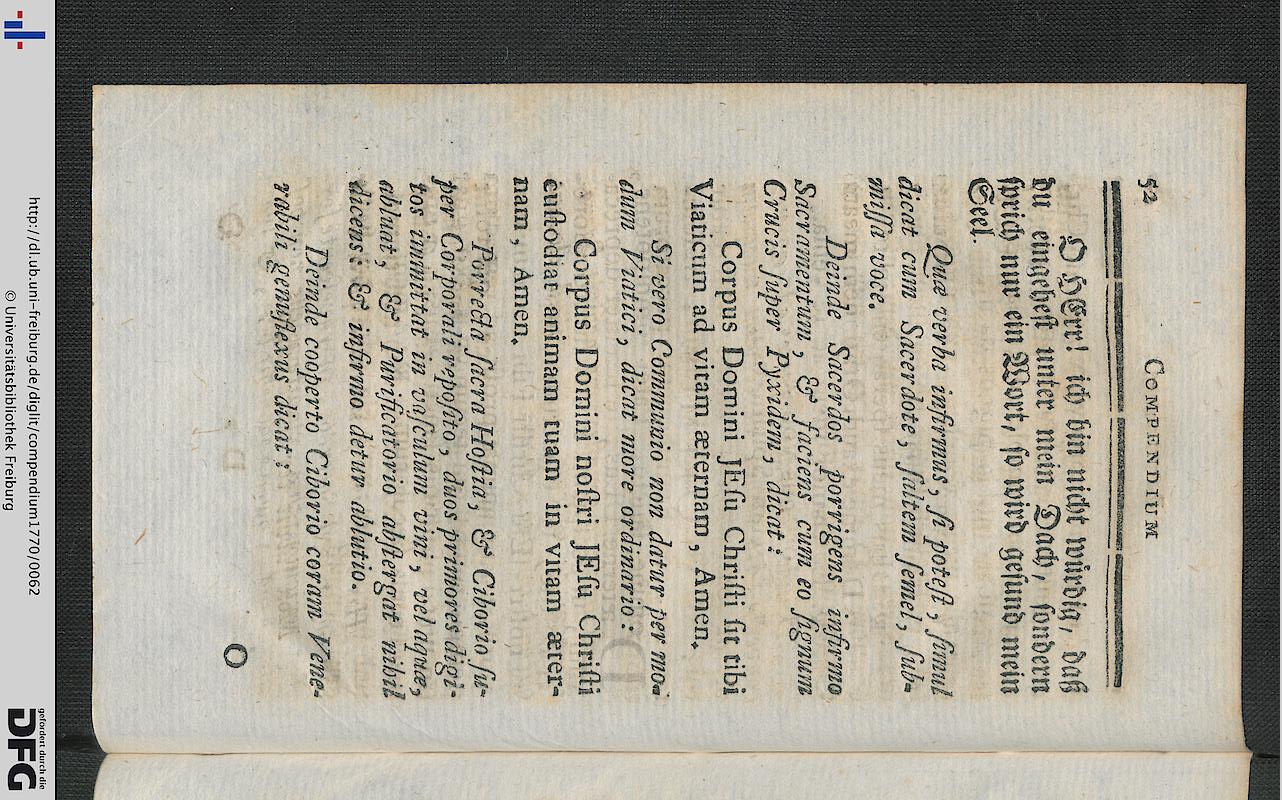 52 COMPENDIUM
O HErr! ich bin nicht würdig, daß
du eingehest unter mein Dach, sondern
sprich nur ein Wort, so wird gesund mein
Seel.
Quæ verba infirmus, si potest, simul
dicat cum Sacerdote, saltem semel, sub-
missa voce.
Deinde Sacerdos porrigens infirmo
Sacramentum, & faciens cum eo signum
Crucis super Pyxidem, dicat:
Corpus Domini JEsu Christi sit tibi
Viaticum ad vitam æternam, Amen.
Si vero Communio non datur per mo-
dum Viatici, dicat more ordinario:
Corpus Domini nostri JEsu Christi
custodiat animam tuam in vitam æter-
nam, Amen.
Porrecta sacra Hostia, & Ciborio su-
per Corporali reposito, duos priores digi-
tos immittat in vasculum vini, vel aquæ,
abluat, & Purificatorio abstergat nihil
dicens: & infirmo detur ablutio.
Deinde cooperto Ciborio coram Vene-
rabili genuflexus dicat:
O
http://dl.ub.uni-freiburg.de/diglit/compendium1770/0062
© Universitätsbibliothek Freiburg
gefördert durch die
DFG